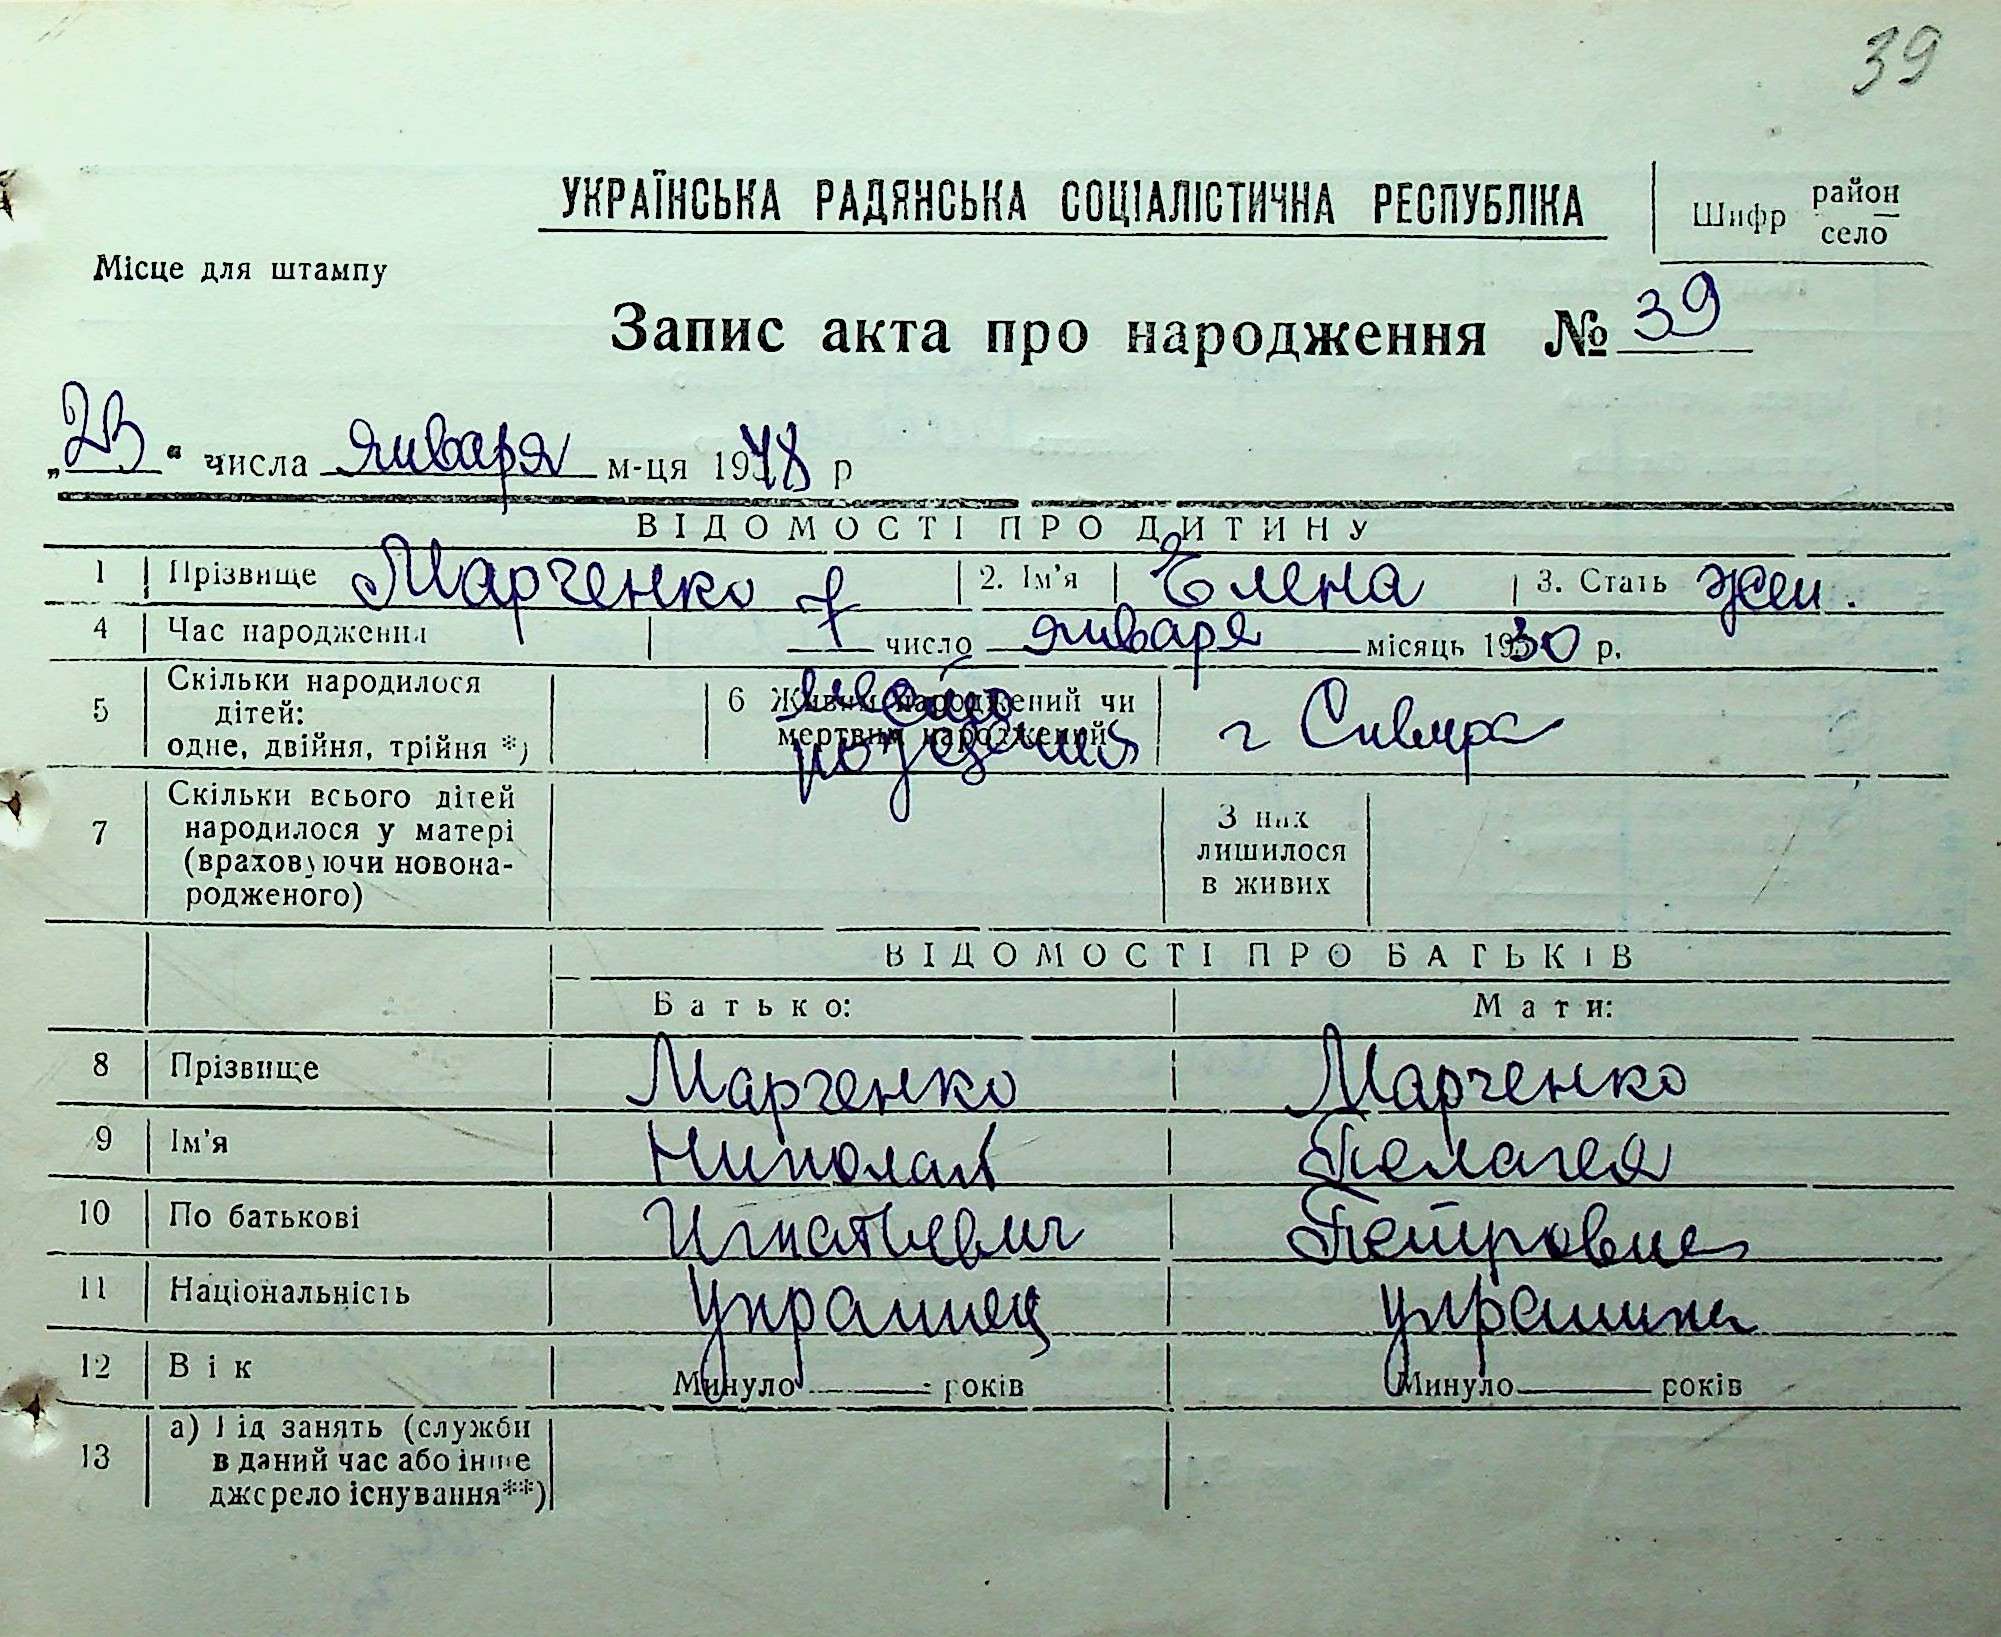 39
УКРАЇНСЬКА РАДЯНСЬКА СОЦІАЛІСТИЧНА РЕСПУБЛІКА
Шифр район
село
Місце для штампу
Запис акта про народження № 39
„23“ числа января м-ця 1978 р
ВІДОМОСТІ ПРО ДИТИНУ
1 Прізвище Марченко 2. Ім'я Елена 3. Стать жен.
4 Час народження 7 число января місяць 1930 р.
5 Скільки народилося дітей: одне, двійня, трійня *)
6 Живим народжений чи мертвим народжений
место рождения
г
7 Скільки всього дітей народилося у матері (враховуючи новонародженого)
З них лишилося в живих
ВІДОМОСТІ ПРО БАТЬКІВ
Батько: Мати:
8 Прізвище Марченко Марченко
9 Ім'я Николай Пелагея
10 По батькові Игнатьевич Петровна
11 Національність украинец украинка
12 Вік Минуло років Минуло років
13 а) Рід занять (служби в даний час або інше джерело існування**)